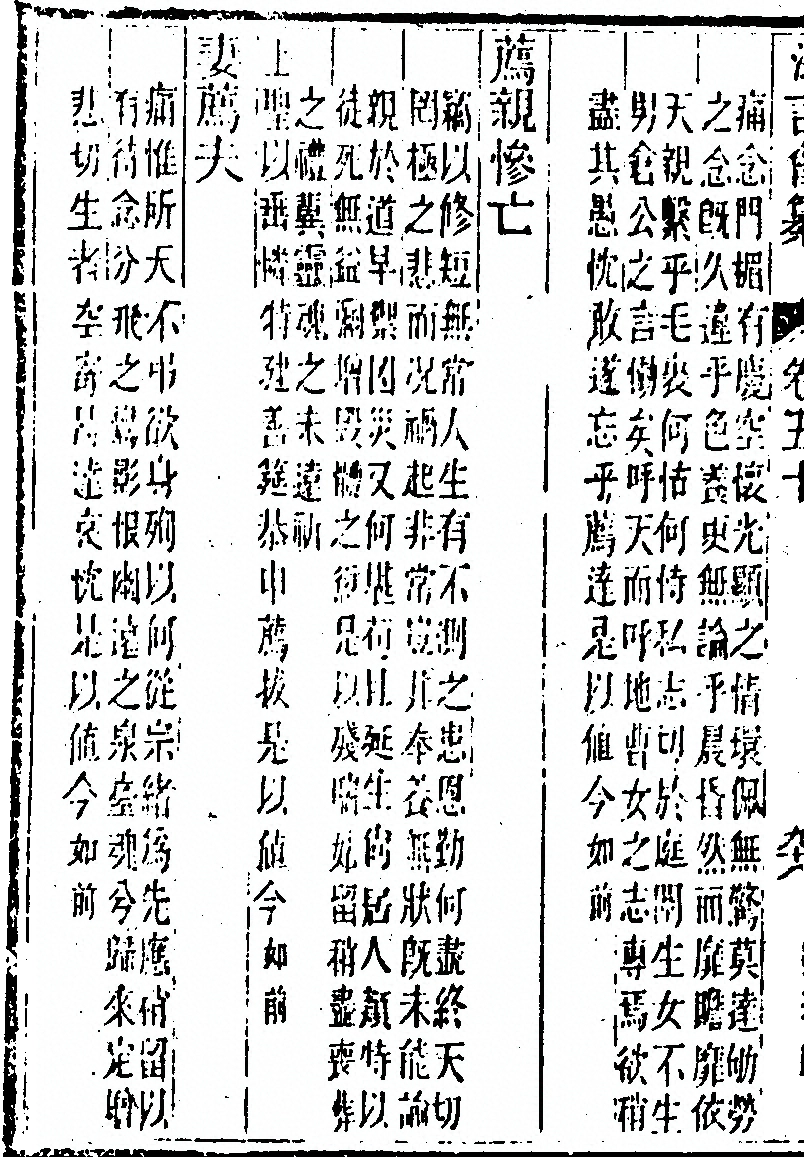 法言會纂 卷五十
痛念門楣有慶空懷光顯之情環佩無驚莫達劬勞
之念既久違乎色養更無論乎晨昏然而靡瞻靡依
天親繫乎毛裏何怙何恃私志切於庭闈生女不生
男倉公之言慟矣呼天而呼地曹女之志專焉欲稍
盡其愚忱敢遂忘乎薦達是以值今如前
薦親慘亡
竊以修短無常人生有不測之患恩勤何盡終天切
罔極之悲而況禍起非常豈非奉養無狀既未能諭
親於道早禦凶災又何堪苟且延生尚居人類特以
徒死無益翻增毀體之愆是以殘喘姑留稍盡喪葬
之禮冀靈魂之未遠祈
上聖以垂憐特建善筵恭申薦拔是以值今如前
妻薦夫
痛惟所天不弔欲身殉以何從宗緒為先應稍留以
有待念分飛之鳥影恨幽遠之泉臺魂兮歸來定增
悲切生者 寄 達哀忱是以值今如前